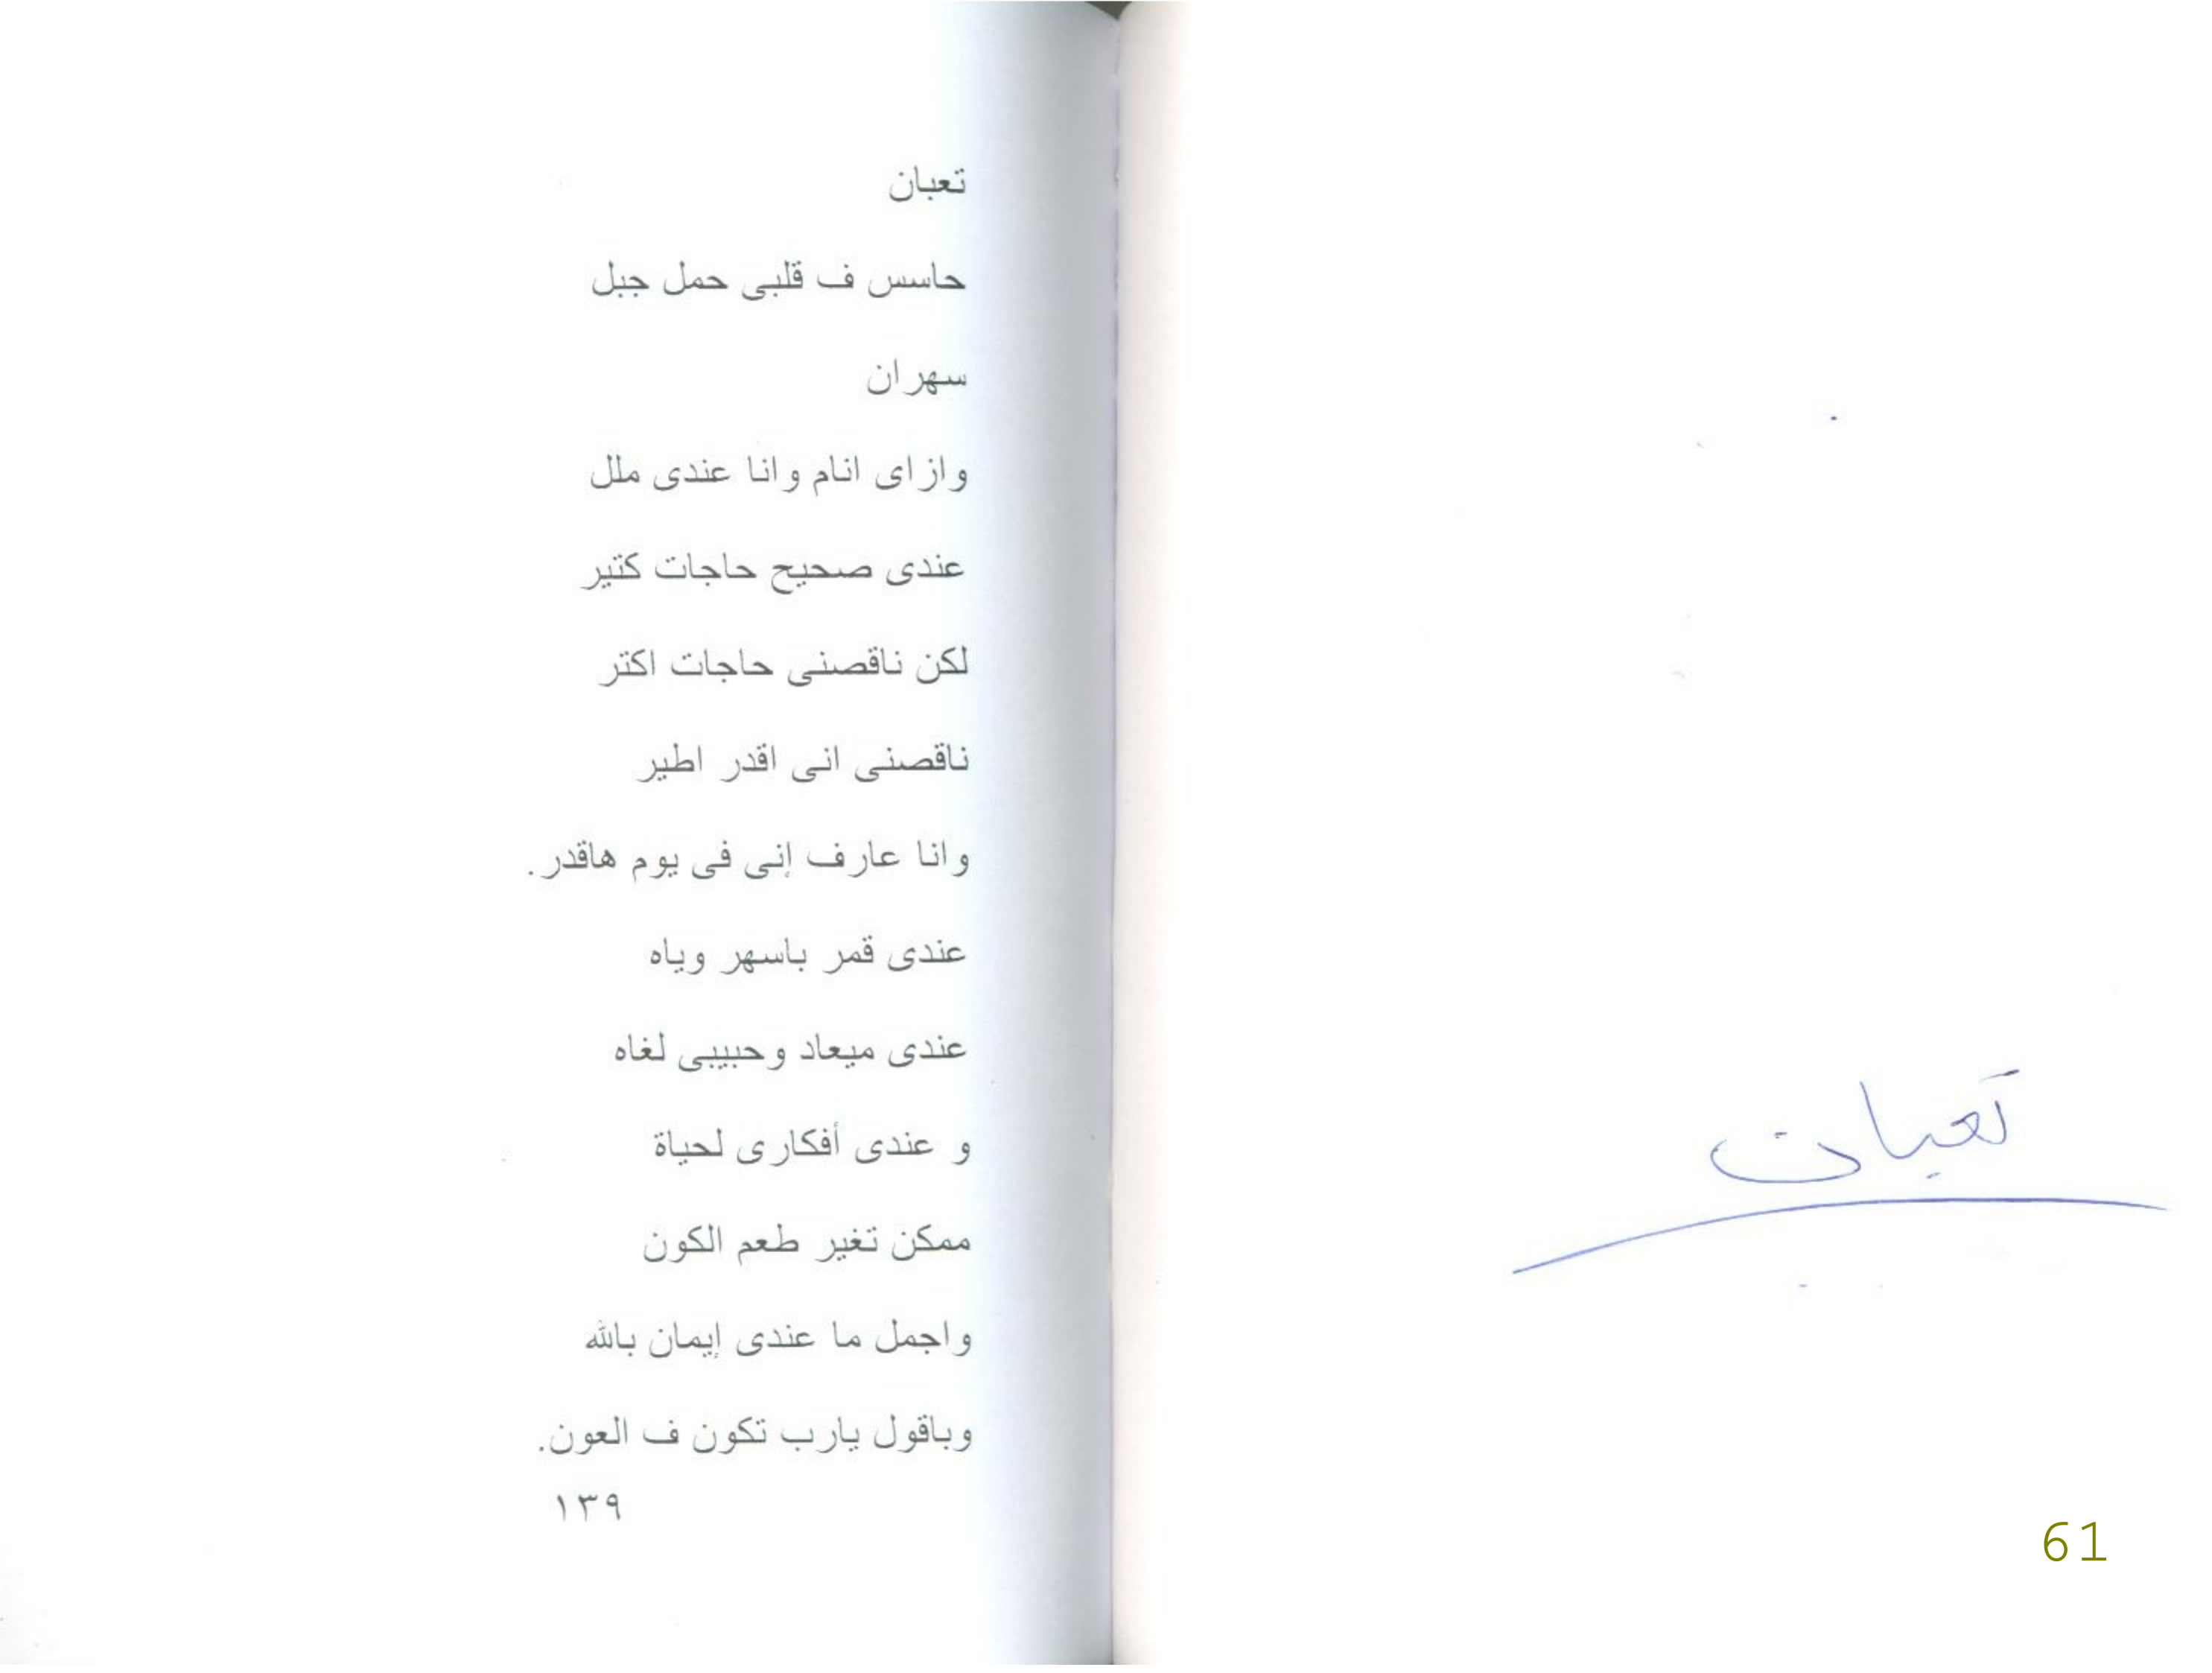 تعبان
تعبان
حاسس ف قلبى حمل جبل
سهران
وازاى انام وانا عندى ملل
عندى صحيح حاجات كتير
لكن ناقصنى حاجات اكتر
ناقصنى انى اقدر اطير
وانا عارف إنى فى يوم هاقدر.
عندى قمر باسهر وياه
عندى ميعاد وحبيبى لغاه
و عندى أفكارى لحياة
ممكن تغير طعم الكون
واجمل ما عندى إيمان بالله
وباقول يارب تكون ف العون.
١٣٩
61